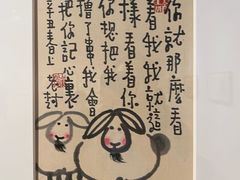 你就那麼看
着我我就這
樣看着你
你想把我
擼了串我會
把你記心裏
辛丑春上